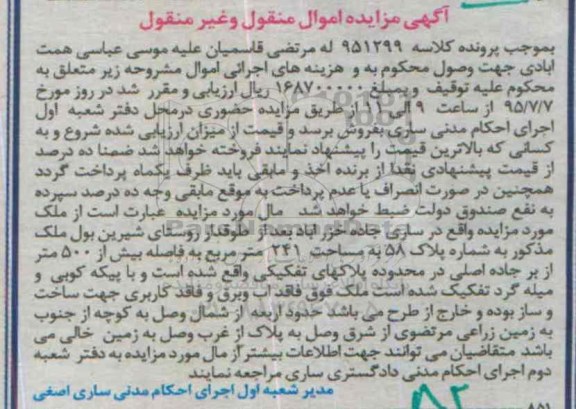 آگهی مزایده اموال منقول وغیر منقول
بموجب پرونده کلاسه ۹۵۱۲۹۹ له مرتضی قاسمیان علیه موسی عباسی همت
ابادی جهت وصول محکوم به و هزینه های اجرائی اموال مشروحه زیر متعلق به
محکوم علیه توقیف و بمبلغ ۱۶۸۷۰۰۰۰۰ ریال ارزیابی و مقرر شد در روز مورخ
۹۵/۷/۷ از ساعت ۹ الی ۱۱ از طریق مزایده حضوری درمحل دفتر شعبه اول
اجرای احکام مدنی ساری بفروش برسد و قیمت از میزان ارزیابی شده شروع و به
کسانی که بالاترین قیمت را پیشنهاد نمایند فروخته خواهد شد ضمنا ده درصد
از قیمت پیشنهادی نقدا از برنده اخذ و مابقی باید ظرف یکماه پرداخت گردد
همچنین در صورت انصراف یا عدم پرداخت به موقع مابقی وجه ده درصد سپرده
به نفع صندوق دولت ضبط خواهد شد مال مورد مزایده عبارت است از ملک
مورد مزایده واقع در ساری جاده خزر اباد بعد از طوقدار روستای شیرین بول ملک
مذکور به شماره پلاک ۵۸ به مساحت ۲۴۱ متر مربع به فاصله بیش از ۵۰۰ متر
از بر جاده اصلی در محدوده پلاکهای تفکیکی واقع شده است و با پیکه کوبی و
میله گرد تفکیک شده است ملک فوق فاقد آب وبرق و فاقد کاربری جهت ساخت
و ساز بوده و خارج از طرح می باشد حدود اربعه از شمال وصل به کوچه از جنوب
به زمین زراعی مرتضوی از شرق وصل به پلاک از غرب وصل به زمین خالی می
باشد متقاضیان می توانند جهت اطلاعات بیشتر از مال مورد مزایده به دفتر شعبه
دوم اجرای احکام مدنی دادگستری ساری مراجعه نمایند
مدیر شعبه اول اجرای احکام مدنی ساری اصغی
۸۵۱